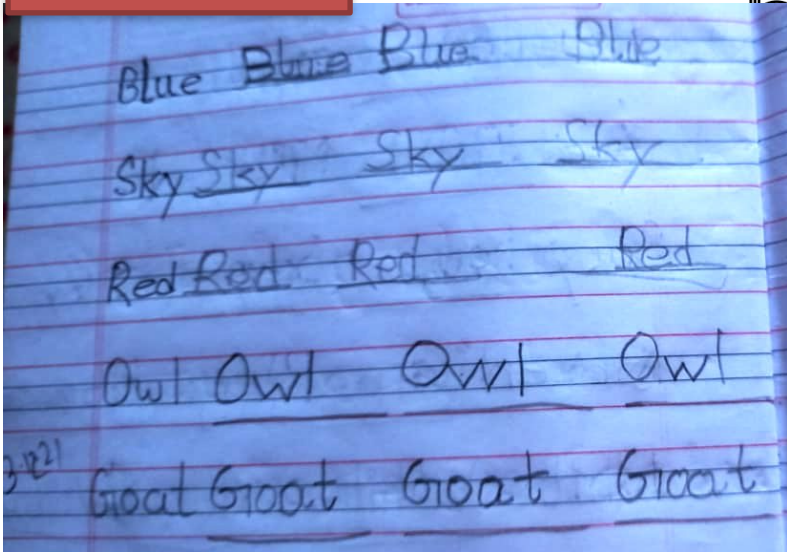 Blue Blue Blue Blue
Sky Sky Sky Sky
Red Red Red Red
Owl Owl Owl Owl
Goat Goat Goat Goat